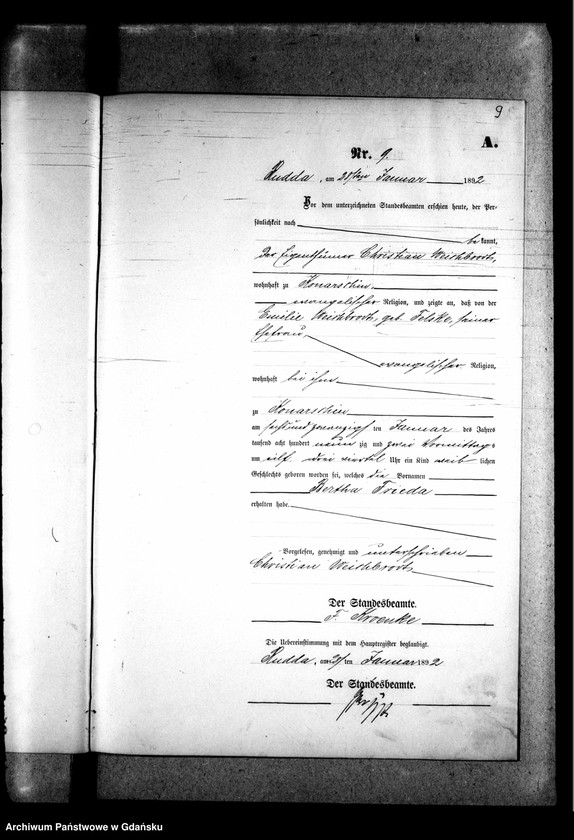 9
A.
Nr. 9.
Rudda, am ten Januar 1892
Vor dem unterzeichneten Standesbeamten erschien heute, der Per-
sönlichkeit nach
bekannt,
der Eigenthümer Christian Weishbrodt,
wohnhaft zu Konarschin,
evangelischer Religion, und zeigte an, daß von der
Emilie Weishbrodt, geb. Felske, seiner
Ehefrau,
evangelischer Religion,
wohnhaft bei ihm
zu Konarschin
am sechsundzwanzigsten Januar des Jahres
tausend acht hundert neunzig und zwei Vormittags
um elf drei viertel Uhr ein Kind weiblichen
Geschlechts geboren worden sei, welches die Vornamen
Bertha Frieda
erhalten habe.
Vorgelesen, genehmigt und unterschrieben
Christian Weishbrodt
Der Standesbeamte.
F. Kroenke
Die Uebereinstimmung mit dem Hauptregister beglaubigt.
Rudda, am ten Januar 1892
Der Standesbeamte.
Archiwum Państwowe w Gdańsku